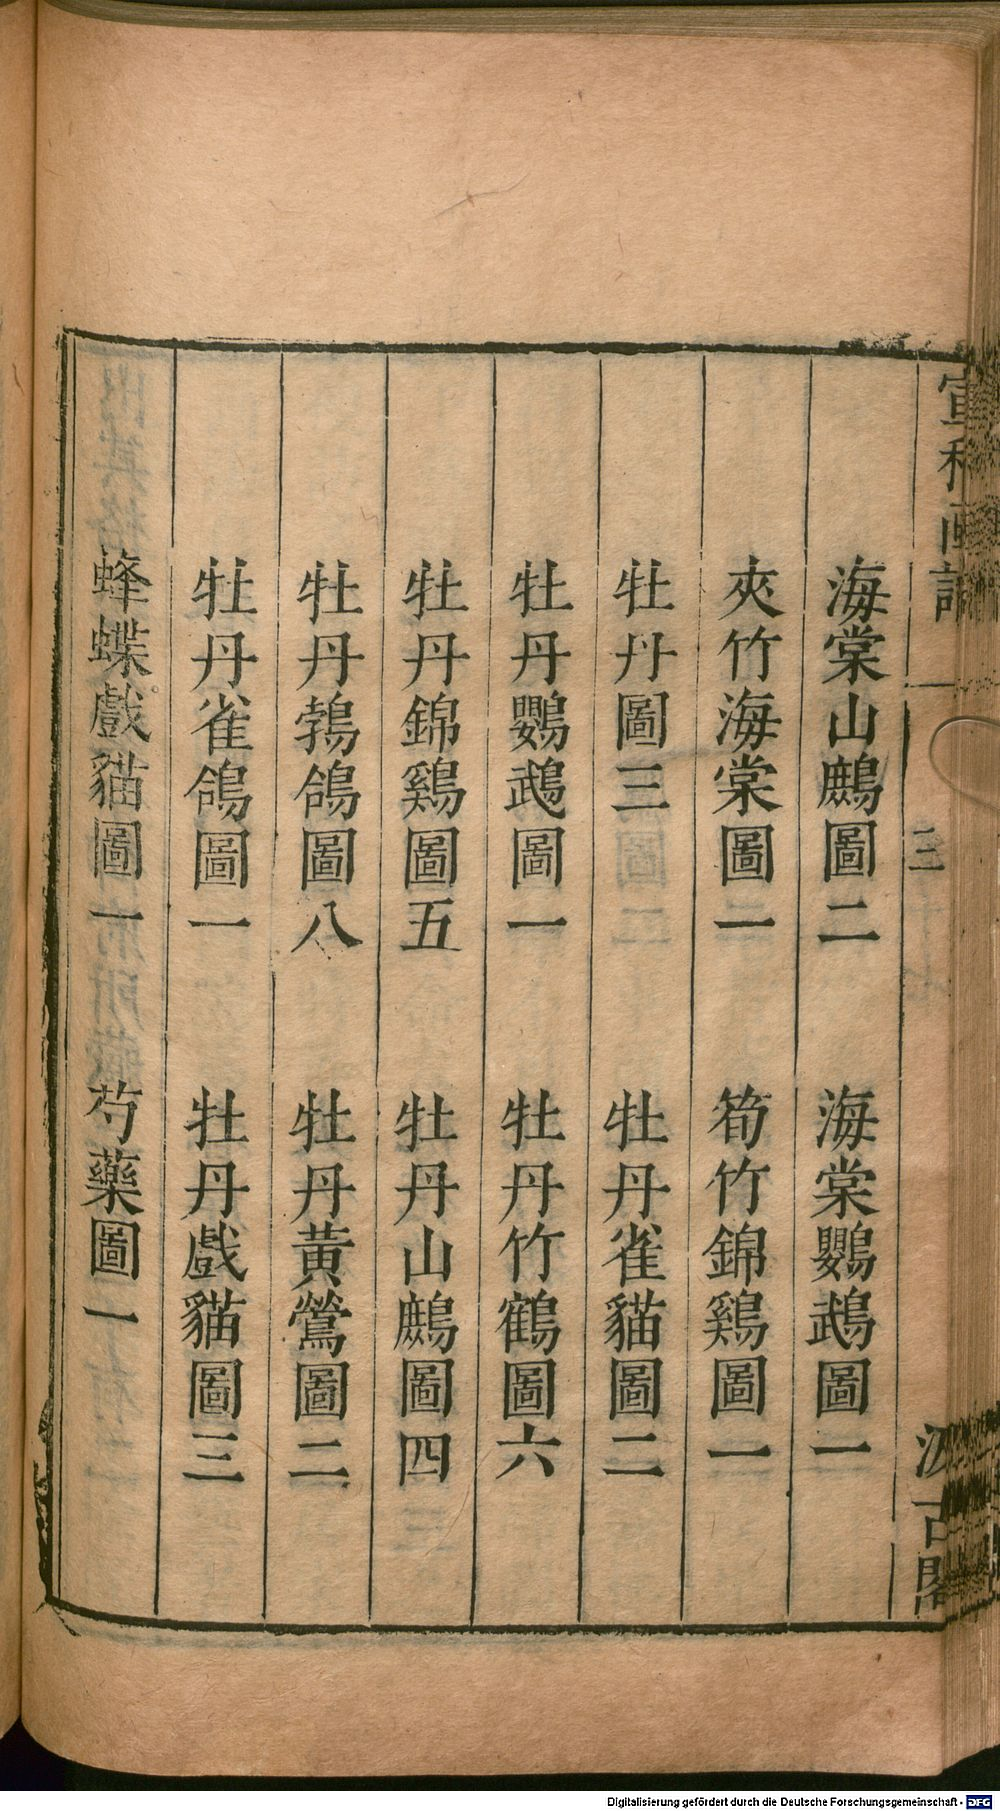 宣和畫譜
三
汲古閣
海棠山鷓圖二 海棠鸚鵡圖一
夾竹海棠圖一 筍竹錦鷄圖一
牡丹圖三 牡丹雀貓圖二
牡丹鸚鵡圖一 牡丹竹鶴圖六
牡丹錦鷄圖五 牡丹山鷓圖四
牡丹鵓鴿圖八 牡丹黃鶯圖二
牡丹雀鴿圖一 牡丹戲貓圖三
蜂蝶戲貓圖一 芍藥圖一
Digitalisierung gefördert durch die Deutsche Forschungsgemeinschaft - DFG